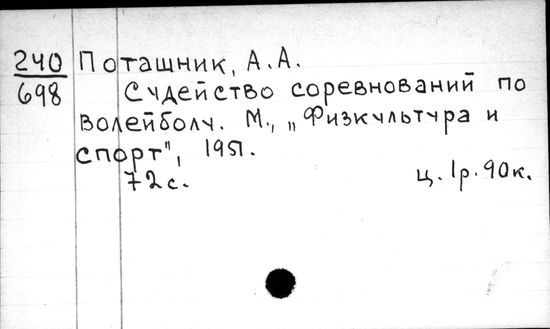 240 Поташник, А.А.
698 Судейство соревнований по
волейболу. М., „Физкультура и
спорт", 1951.
72с. ц. 1р. 90к.